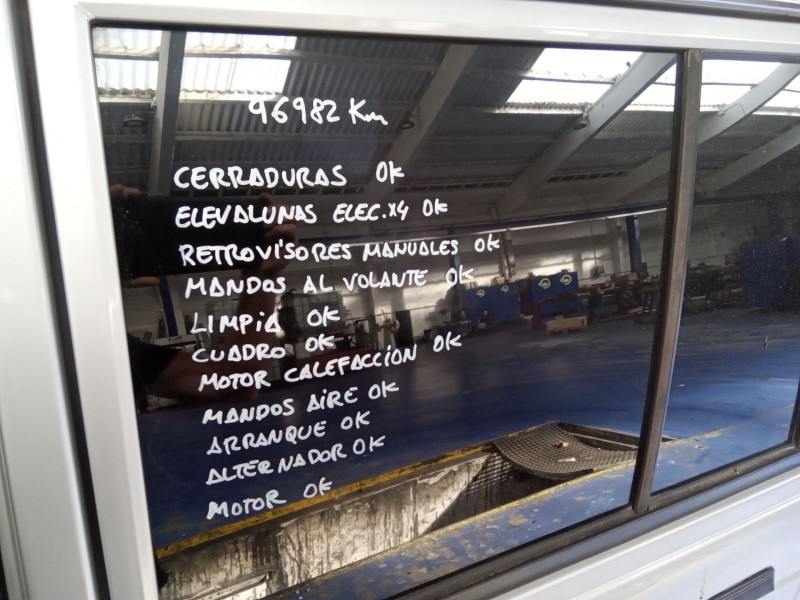 96982 Km
CERRADURAS OK
ELEVALUNAS ELEC.x4 OK
RETROVISORES MANUALES OK
MANDOS AL VOLANTE OK
LIMPIA OK
CUADRO OK
MOTOR CALEFACCION OK
MANDOS AIRE OK
ARRANQUE OK
ALTERNADOR OK
MOTOR OK